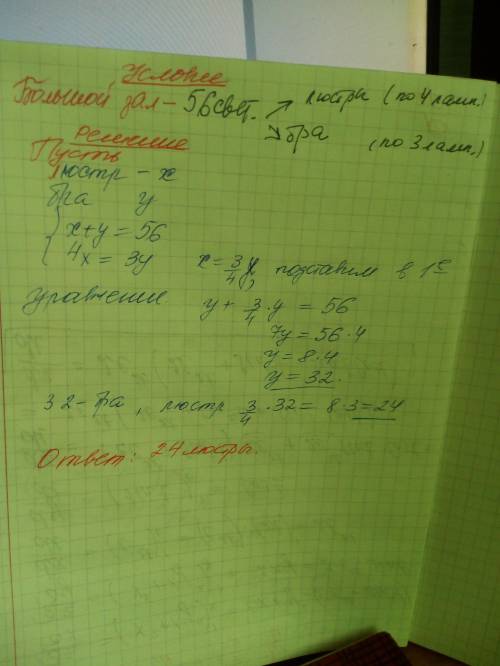 Условие
Большой зал - 56 свет. ↗ люстры (по 4 ламп.)
↘ бра (по 3 ламп.)
Решение
Пусть
люстр - x
бра y
x+y = 56
4x = 3y x = 3/4 y, подставим в 1ое
уравнение. y + 3/4 · y = 56
7y = 56 · 4
y = 8 · 4
y = 32.
32 - бра, люстр 3/4 · 32 = 8 · 3 = 24
Ответ: 24 люстры.